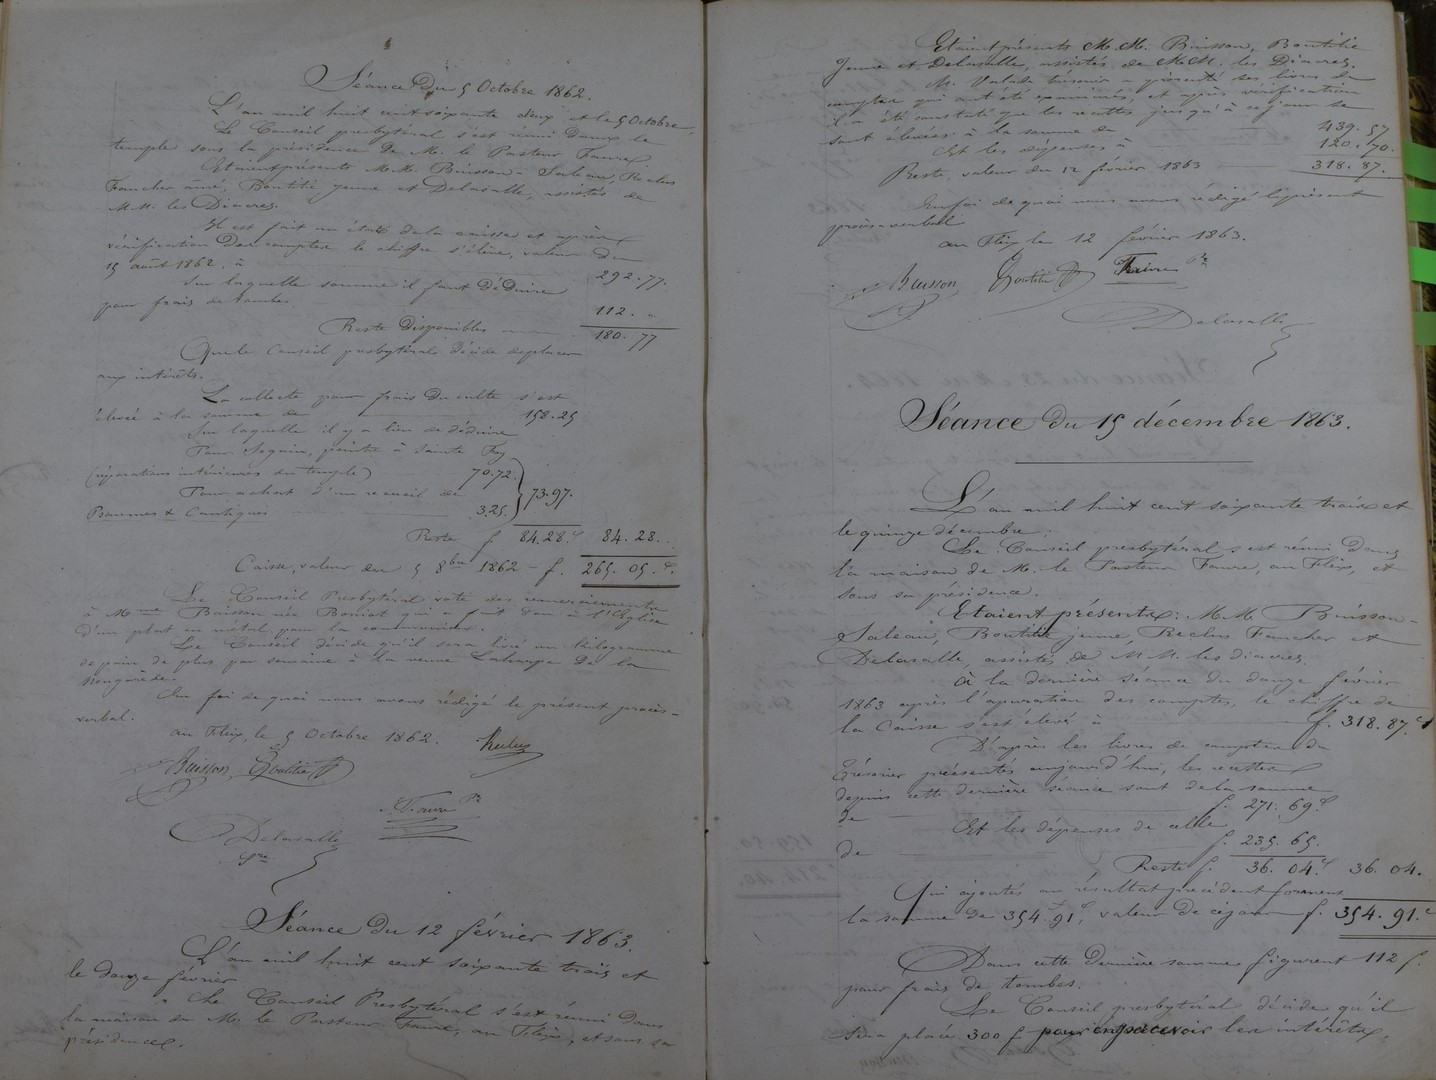 Séance Du 5 Octobre 1862.
L'an mil huit cent soixante deux et le 5 Octobre,
Le Conseil presbytéral s'est réuni dans le
temple sous la présidence de M. le Pasteur Faure
Etaient présents M.M. Buisson-Saleau, Reclus
Faucher aîné, Boutitié jeune et Delasalle, assistés de
M.M. les Diacres.
Il est fait un état de la caisse et après
vérification des comptes le chiffre s'élève, valeur du
15 août 1862, à 292.77.
Sur laquelle somme il faut Déduire
pour frais de tombes 112. "
Reste disponibles 180.77
Que le Conseil presbytéral décide de placer
aux intérêts.
La collecte pour frais du culte s'est
élevée à la somme de 158.25
Sur laquelle il y a lieu de déduire
Pour Seguin, peintre à Sainte Foy
(réparations intérieures du temple) 70.72
Pour achat d'un recueil de 73.97.
Psaumes & Cantiques 3.25
Reste f. 84.28.c 84.28..
Caisse, valeur du 5 8bre 1862 - f. 265.05.c
Le Conseil Presbytéral vote des remerciements
à Mme Buisson née qui a fait don à l'Eglise
d'un plat en métal pour la communion.
Le Conseil décide qu'il sera livré un kilogramme
de pain de plus par semaine à la veuve Laharpe De la
Rougarède.
En foi de quoi nous avons rédigé le présent procès-
verbal.
au Fleix, le 5 Octobre 1862. Reclus
Buisson, Boutitié
Faure Pr
Delasalle
Sre
Séance du 12 février 1863.
L'an mil huit cent soixante trois et
le douze février
Le Conseil Presbytéral s'est réuni Dans
la maison de M. le Pasteur Faure, au Fleix, et sous sa
présidence.
Etaient présents M.M. Buisson, Boutitié
Jeune et Delasalle, assistés de M.M. les Diacres.
M. Valade trésorier a présenté ses livres de
comptes qui ont été examinés, et après vérification
il a été constaté que les recettes jusqu'à ce jour se
sont élevées à la somme de 439.57
Et les dépenses à 120.70.
Reste, valeur du 12 février 1863 318.87.
En foi de quoi nous avons rédigé le présent
procès-verbal
au Fleix le 12 février 1863.
Buisson Boutitié Faure Pr
Delasalle
Séance du 15 décembre 1863.
L'an mil huit cent soixante trois et
le quinze décembre,
Le Conseil presbytéral s'est réuni Dans
la maison de M. le Pasteur Faure, au Fleix, et
sous sa présidence.
Etaient présents: M.M. Buisson-
Saleau, Boutitié jeune, Reclus Faucher et
Delasalle, assistés de M.M. les diacres.
à la dernière séance du douze février
1863 après l'apuration des comptes, le chiffre de
la Caisse s'est élevé à f. 318.87.c
D'après les livres de comptes du
trésorier présentés aujourd'hui, les recettes
depuis cette dernière séance sont de la somme
de f. 271.69c
Et les dépenses de celle
de f. 235.65.
Reste f. 36.04.c 36.04.
Qui ajoutés au résultat précédent forment
la somme de 354f 91c, valeur de ce jour f. 354.91.c
Dans cette dernière somme figurent 112 f.
pour frais de tombes.
Le Conseil presbytéral décide qu'il
sera placé 300 f pour en percevoir les intérêts,